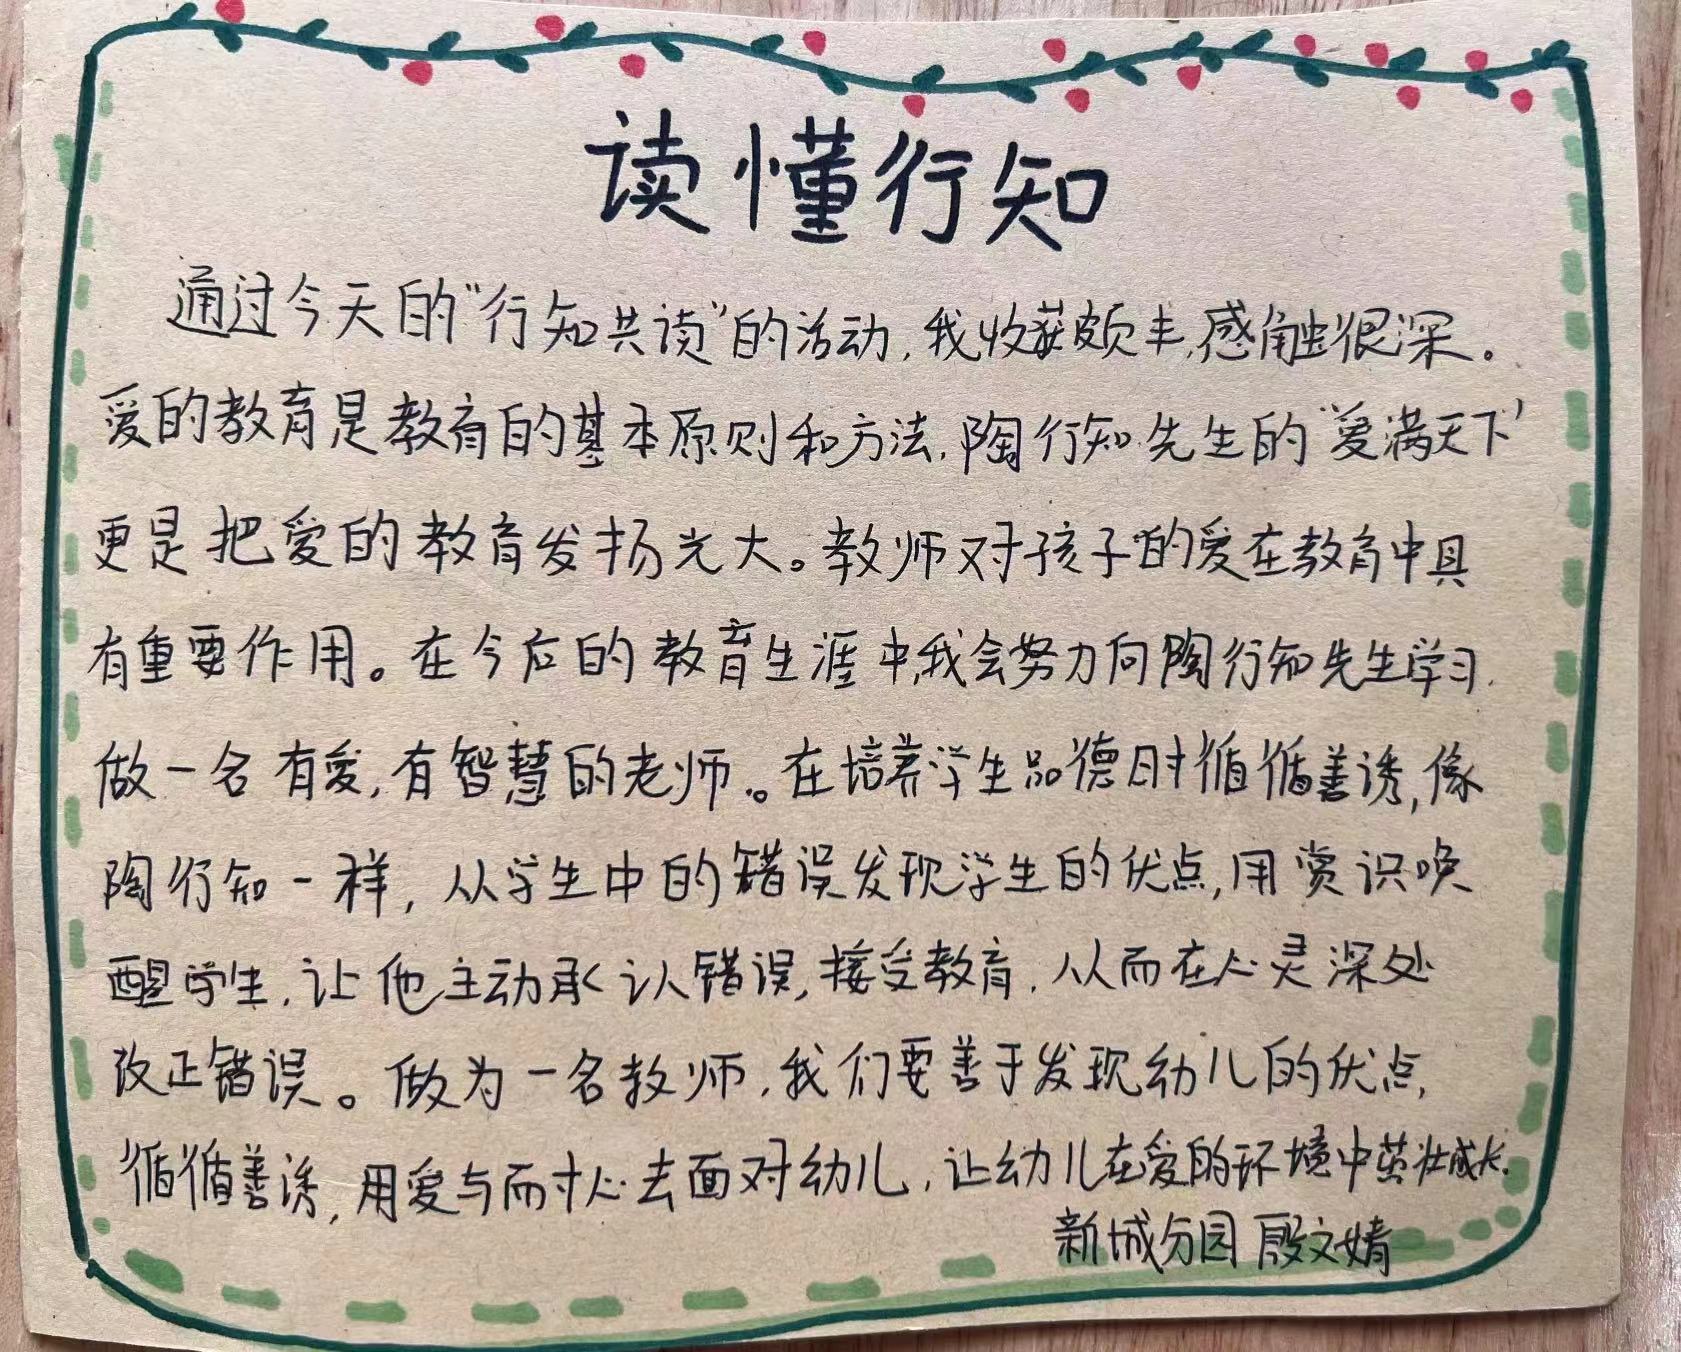 读懂行知
通过今天的“行知共读”的活动,我收获颇丰,感触很深。
爱的教育是教育的基本原则和方法,陶行知先生的“爱满天下”
更是把爱的教育发扬光大。教师对孩子的爱在教育中具
有重要作用。在今后的教育生涯中,我会努力向陶行知先生学习.
做一名有爱,有智慧的老师。在培养学生品德时循循善诱,像
陶行知一样,从学生中的错误发现学生的优点,用赏识唤
醒学生,让他主动承认错误,接受教育,从而在心灵深处
改正错误。做为一名教师,我们要善于发现幼儿的优点,
循循善诱,用爱与耐心去面对幼儿,让幼儿在爱的环境中茁壮成长.
新城分园 殷文婧